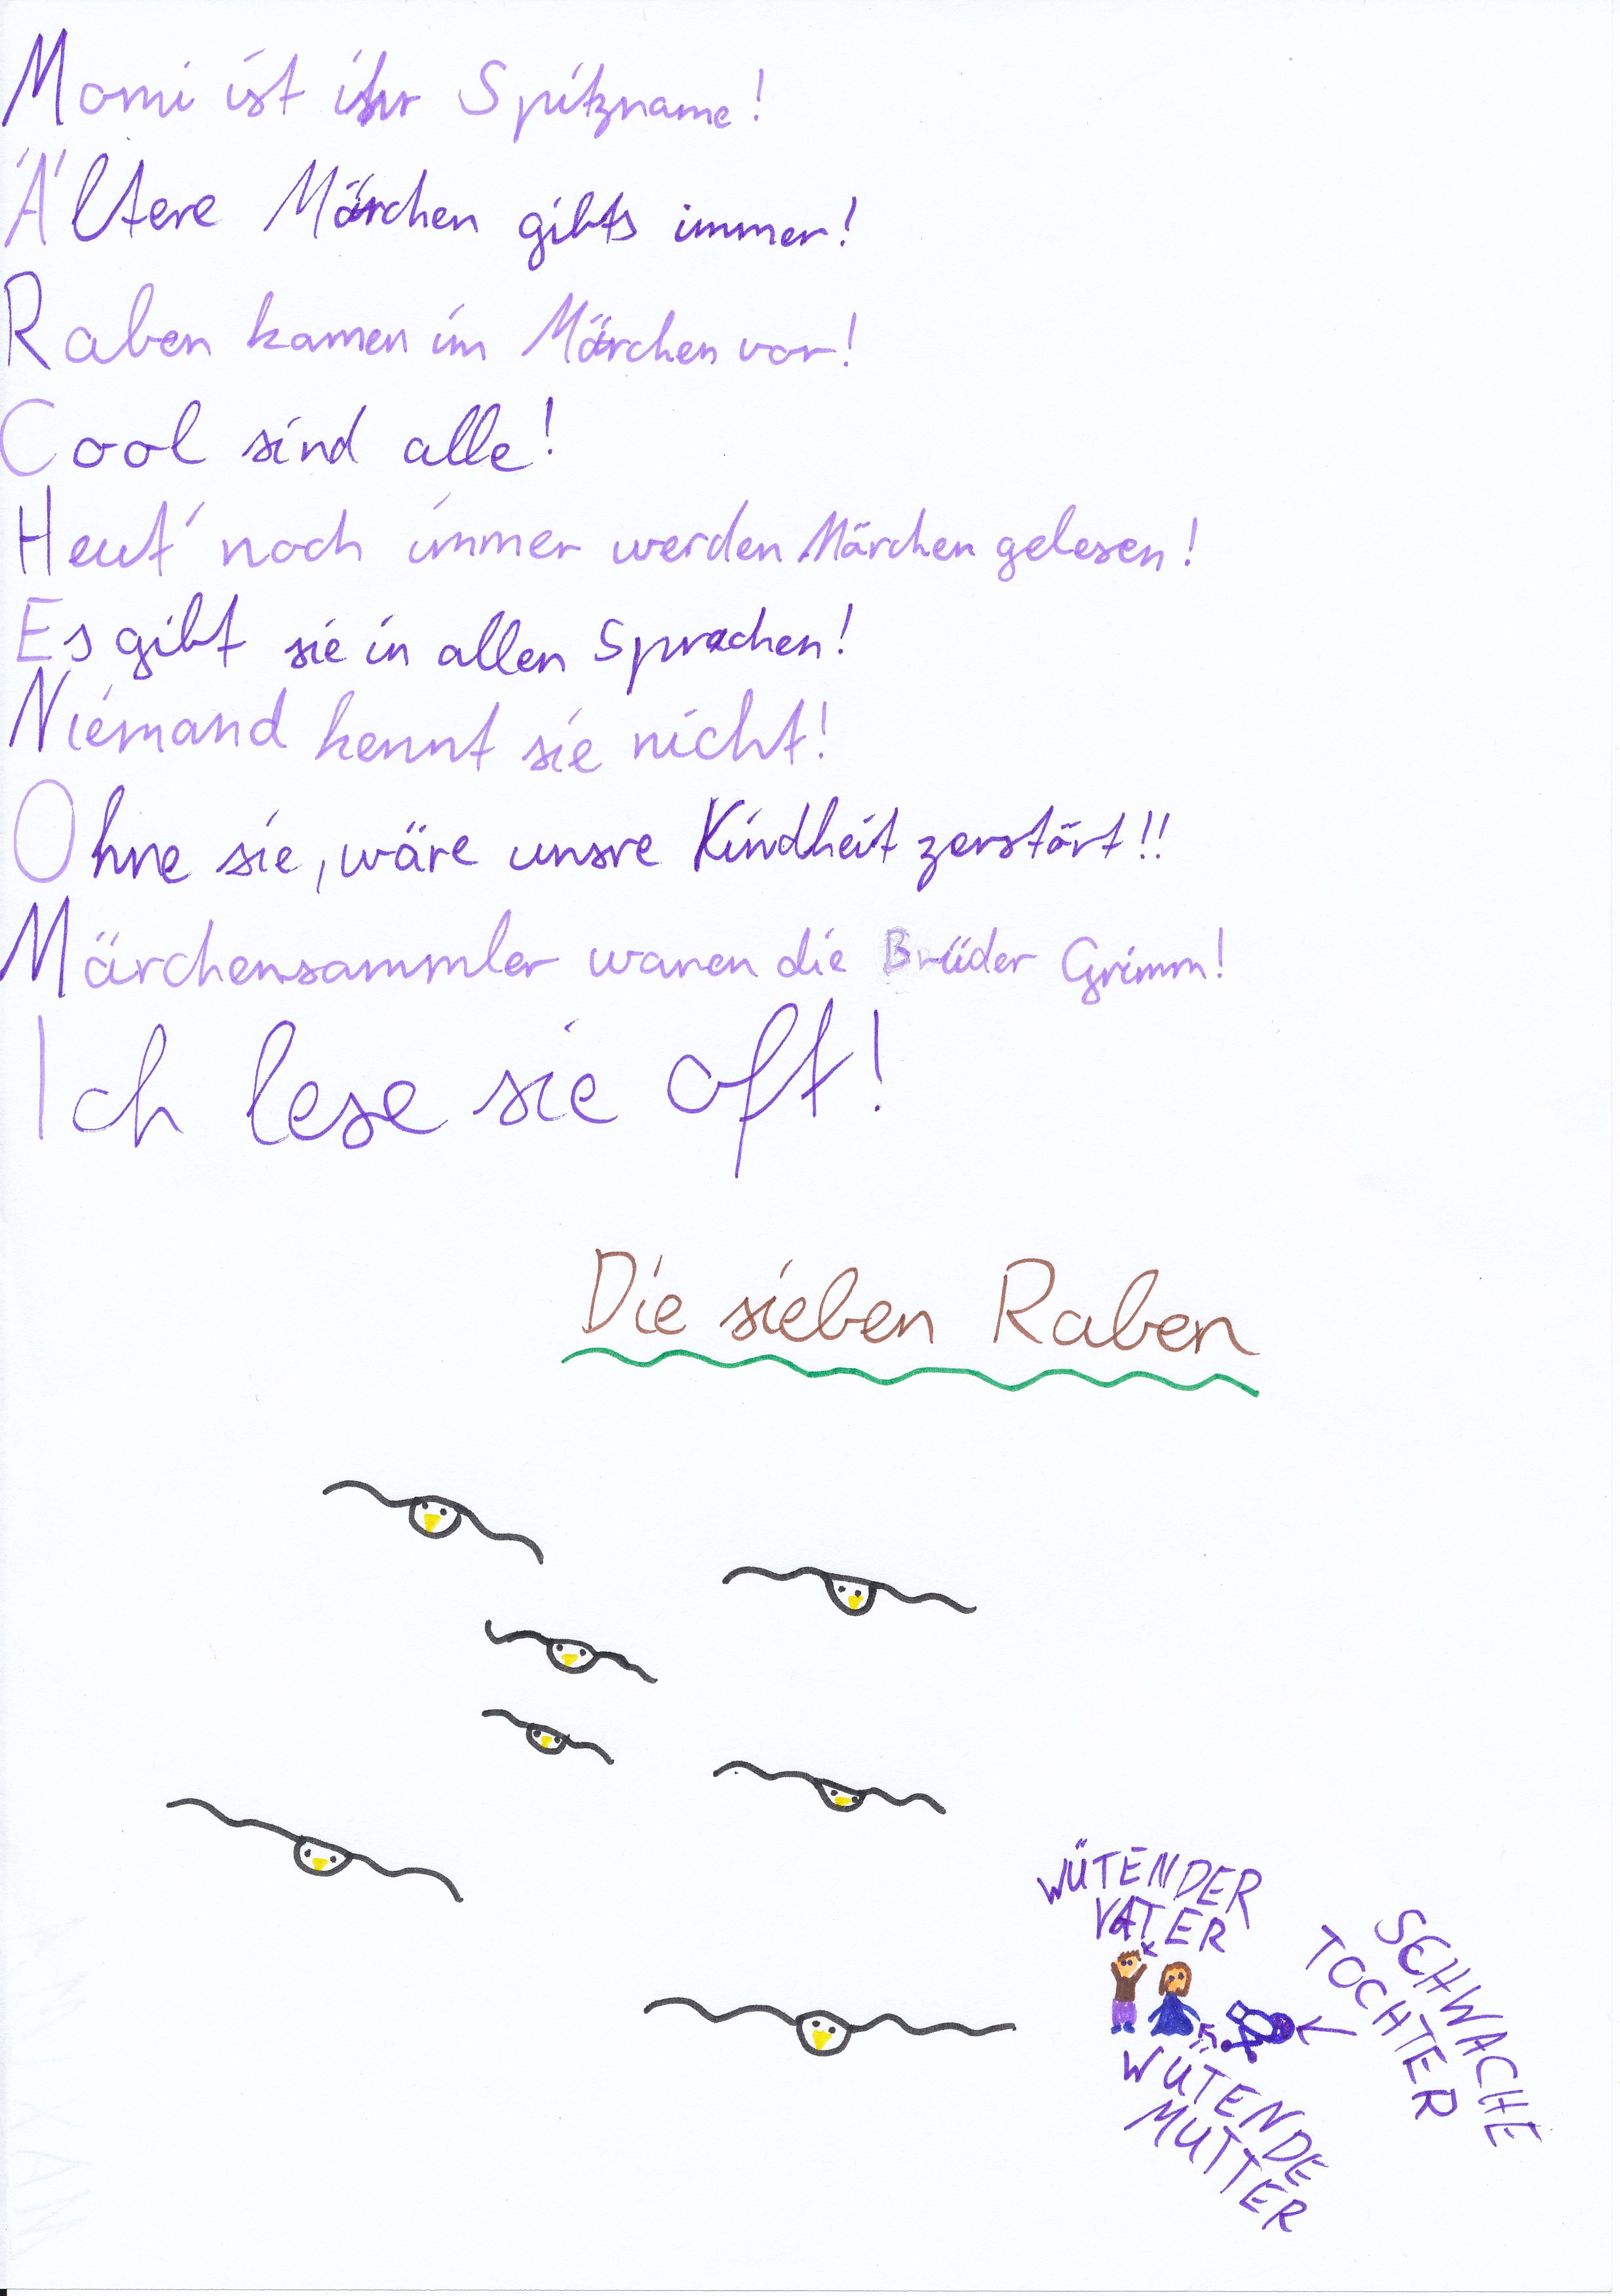 Momi ist ihr Spitzname!
Ältere Märchen gibts immer!
Raben kamen im Märchen vor!
Cool sind alle!
Heut' noch immer werden Märchen gelesen!
Es gibt sie in allen Sprachen!
Niemand kennt sie nicht!
Ohne sie, wäre unsre Kindheit zerstört!!
Märchensammler waren die Brüder Grimm!
Ich lese sie oft!
Die sieben Raben
WÜTENDER
VATER
SCHWACHE
TOCHTER
WÜTENDE
MUTTER